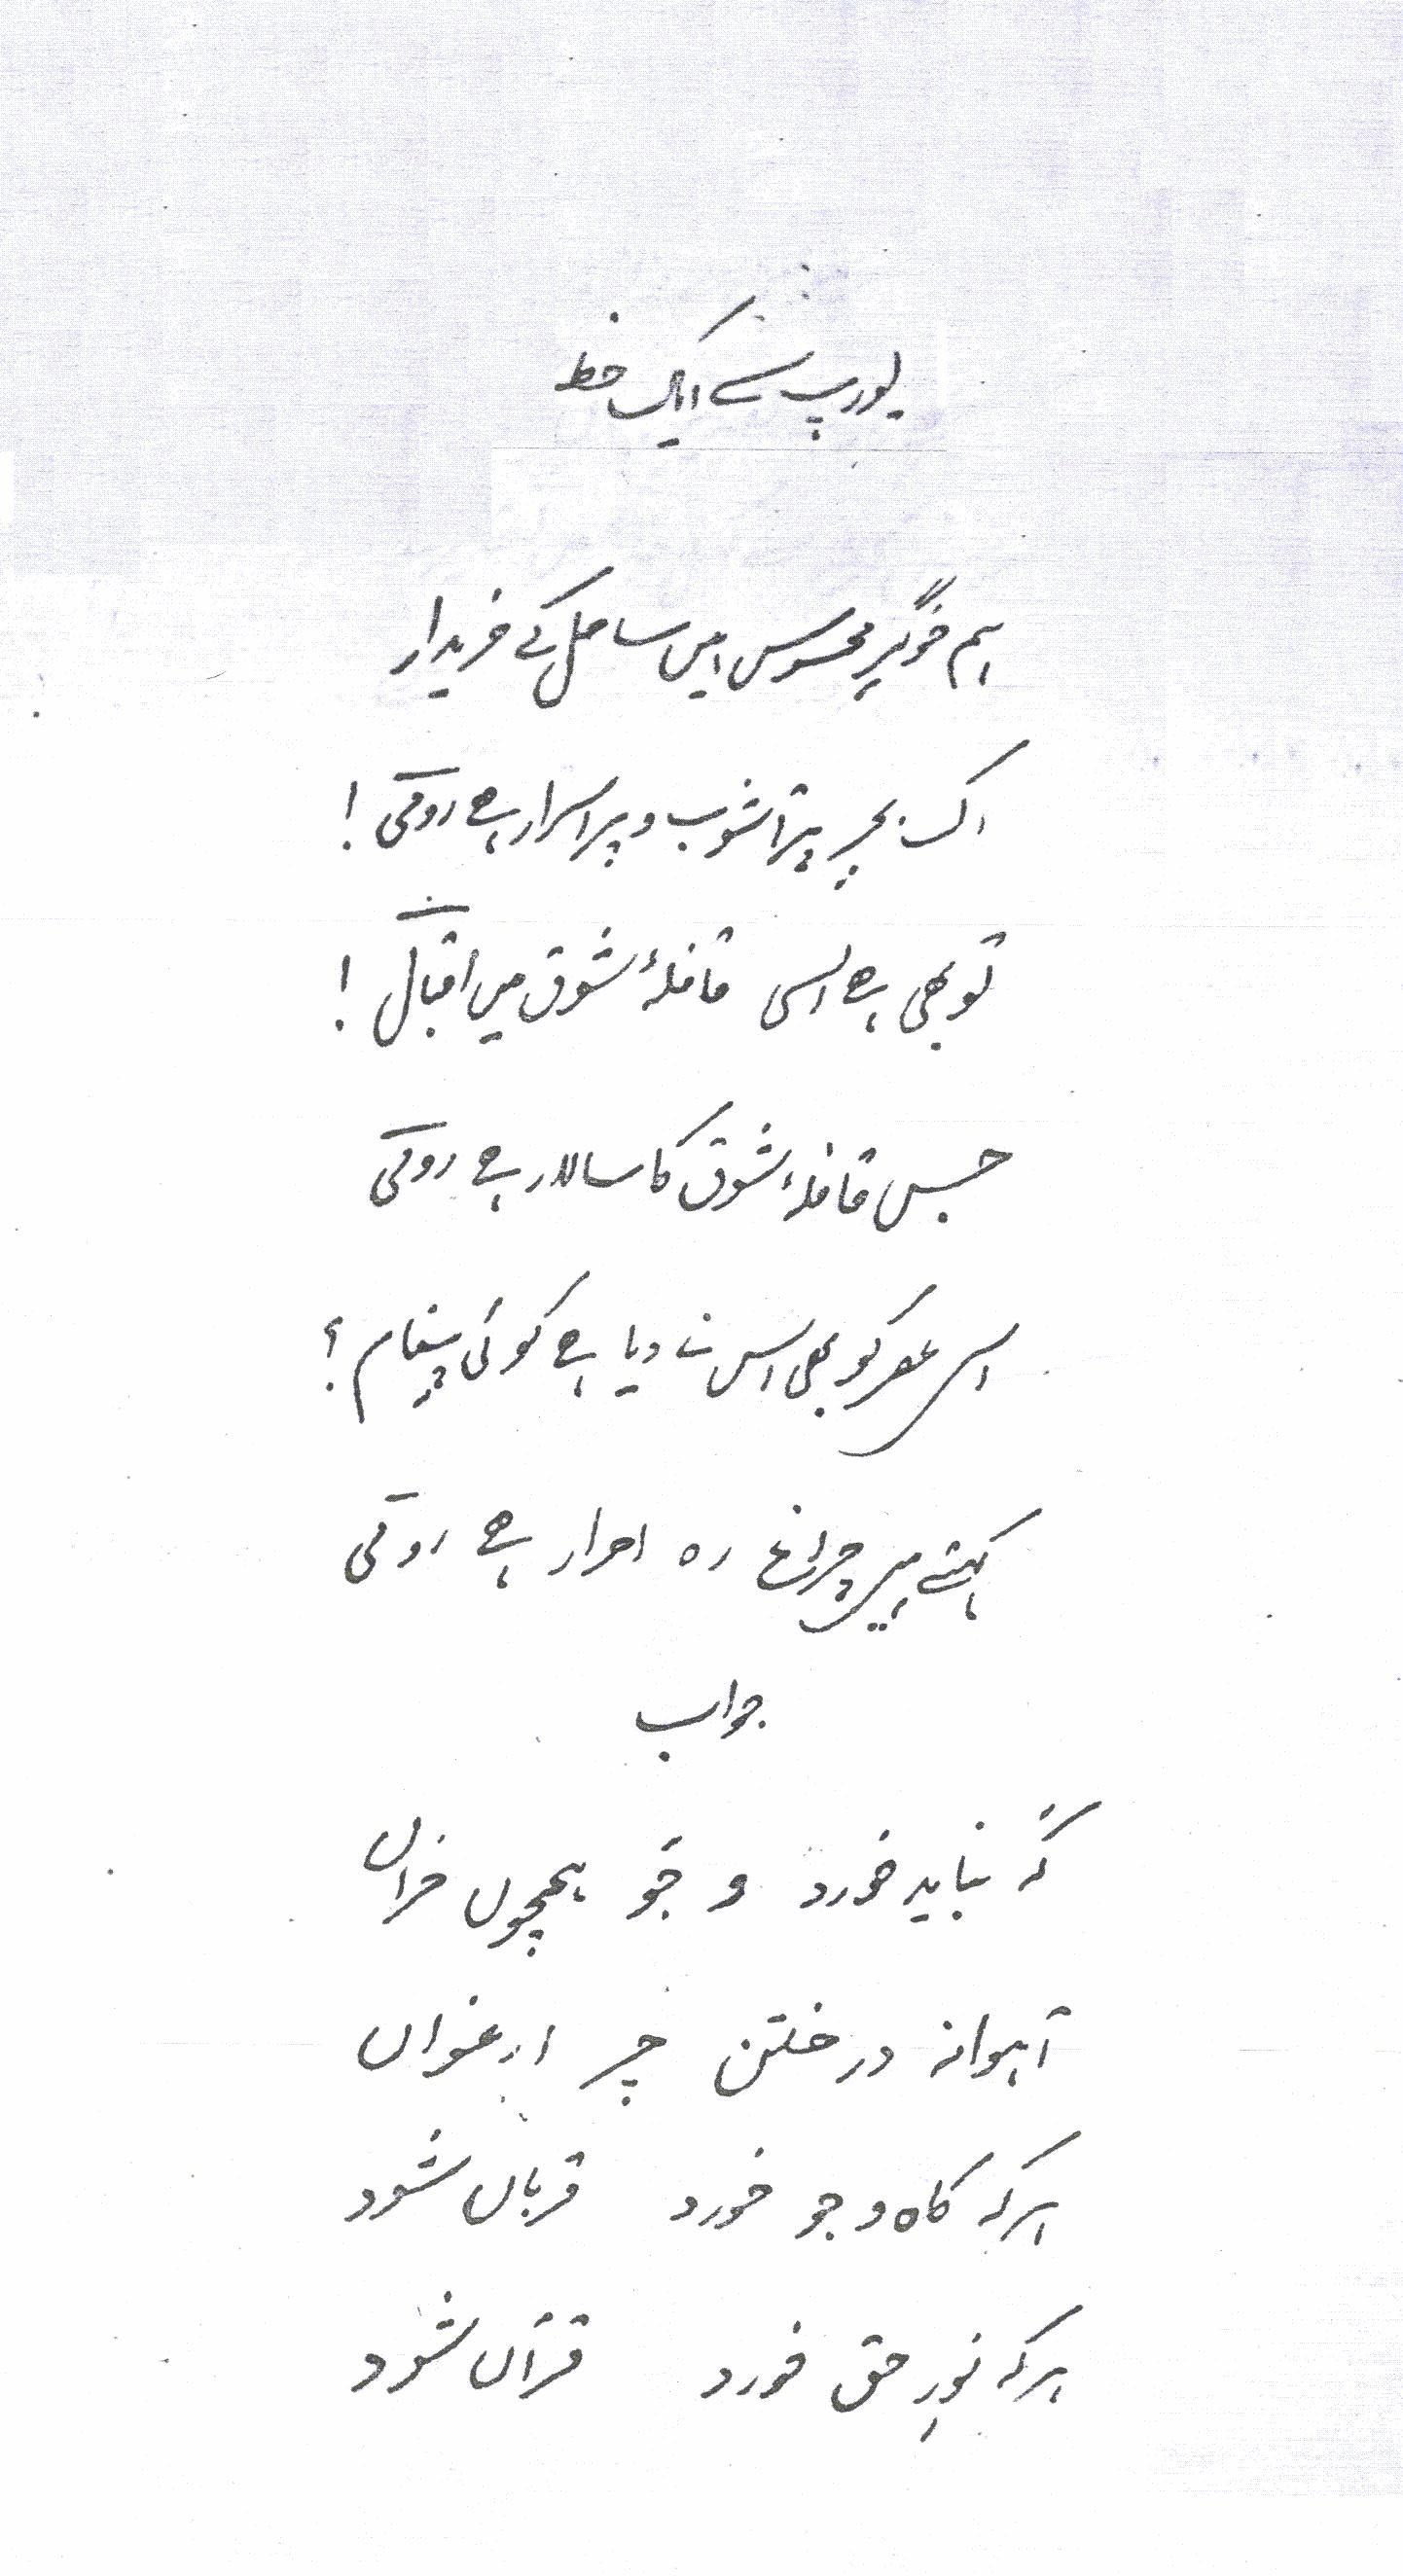 یورپ سے ایک خط
ہم خوگرِ محسوس ہیں ساحل کے خریدار
اک بحرِ پُرآشوب و پراسرار ہے رومی !
تو بھی ہے اسی قافلۂ شوق میں اقبال !
جس قافلۂ شوق کا سالار ہے رومی
اس عصر کو بھی اس نے دیا ہے کوئی پیغام ؟
کہتے ہیں چراغ رہ احرار ہے رومی
جواب
کہ نباید خورد و جَو ہمچوں خراں
آہوانہ در ختن چر ارغواں
ہرکہ کاہ و جو خورد قرباں شود
ہرکہ نورِ حق خورد قرآں شود